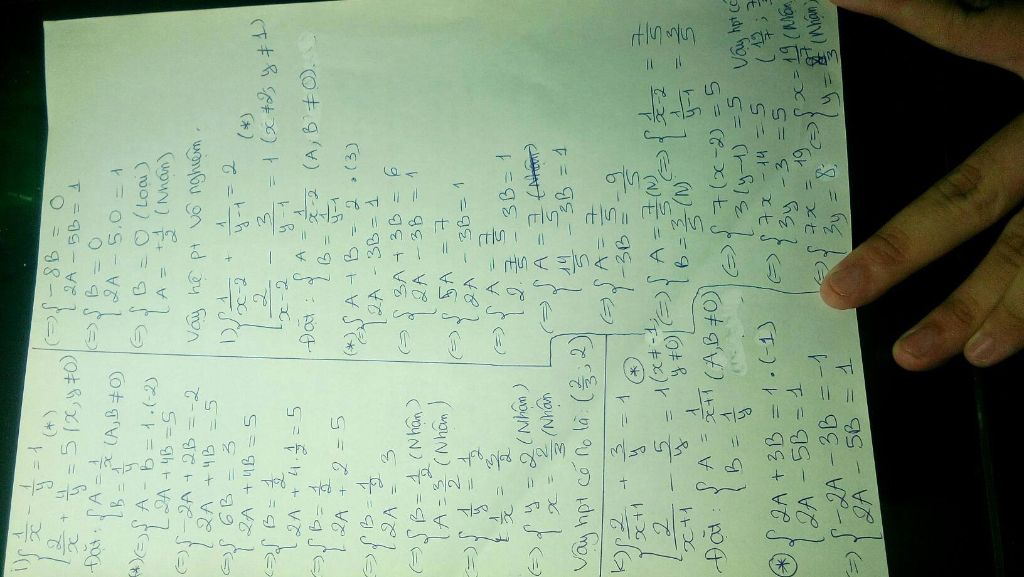 i) { 1/x - 1/y = 1
{ 2/x + 4/y = 5 (x, y ≠ 0) (*)
Đặt: { A = 1/x
{ B = 1/y (A, B ≠ 0)
(*) (=) { A - B = 1 . (-2)
{ 2A + 4B = 5
(=) { -2A + 2B = -2
{ 2A + 4B = 5
(=) { 6B = 3
{ 2A + 4B = 5
(=) { B = 1/2
{ 2A + 4 . 1/2 = 5
(=) { B = 1/2
{ 2A + 2 = 5
(=) { B = 1/2
{ 2A = 3
(=) { B = 1/2 (Nhận)
{ A = 3/2 (Nhận)
(=) { 1/y = 1/2
{ 1/x = 3/2
(=) { y = 2 (Nhận)
{ x = 2/3 (Nhận)
Vậy hpt có no là: (2/3; 2)
k) { 2/x+1 + 3/y = 1 (*)
{ 2/x+1 - 5/y = 1 (x ≠ -1, y ≠ 0)
Đặt: { A = 1/x+1
{ B = 1/y (A, B ≠ 0)
(*) { 2A + 3B = 1 . (-1)
{ 2A - 5B = 1
=) { -2A - 3B = -1
{ 2A - 5B = 1
(=) { -8B = 0
{ 2A - 5B = 1
(=) { B = 0
{ 2A - 5.0 = 1
(=) { B = 0 (Loại)
{ A = 1/2 (Nhận)
Vậy hệ pt vô nghiệm.
l) { 1/x-2 + 1/y-1 = 2 (*)
{ 2/x-2 - 3/y-1 = 1 (x ≠ 2, y ≠ 1)
Đặt: { A = 1/x-2
{ B = 1/y-1 (A, B ≠ 0)
(*) (=) { A + B = 2 . (3)
{ 2A - 3B = 1
(=) { 3A + 3B = 6
{ 2A - 3B = 1
(=) { 5A = 7
{ 2A - 3B = 1
(=) { A = 7/5
{ 2. 7/5 - 3B = 1
(=) { A = 7/5
{ 14/5 - 3B = 1
(=) { A = 7/5
{ -3B = -9/5
(=) { A = 7/5 (N)
{ B = 3/5 (N)
(=) { 1/x-2 = 7/5
{ 1/y-1 = 3/5
(=) { 7(x-2) = 5
{ 3(y-1) = 5
(=) { 7x - 14 = 5
{ 3y - 3 = 5
(=) { 7x = 19
{ 3y = 8
(=) { x = 19/7 (Nhận)
{ y = 8/3 (Nhận)
Vậy hpt có